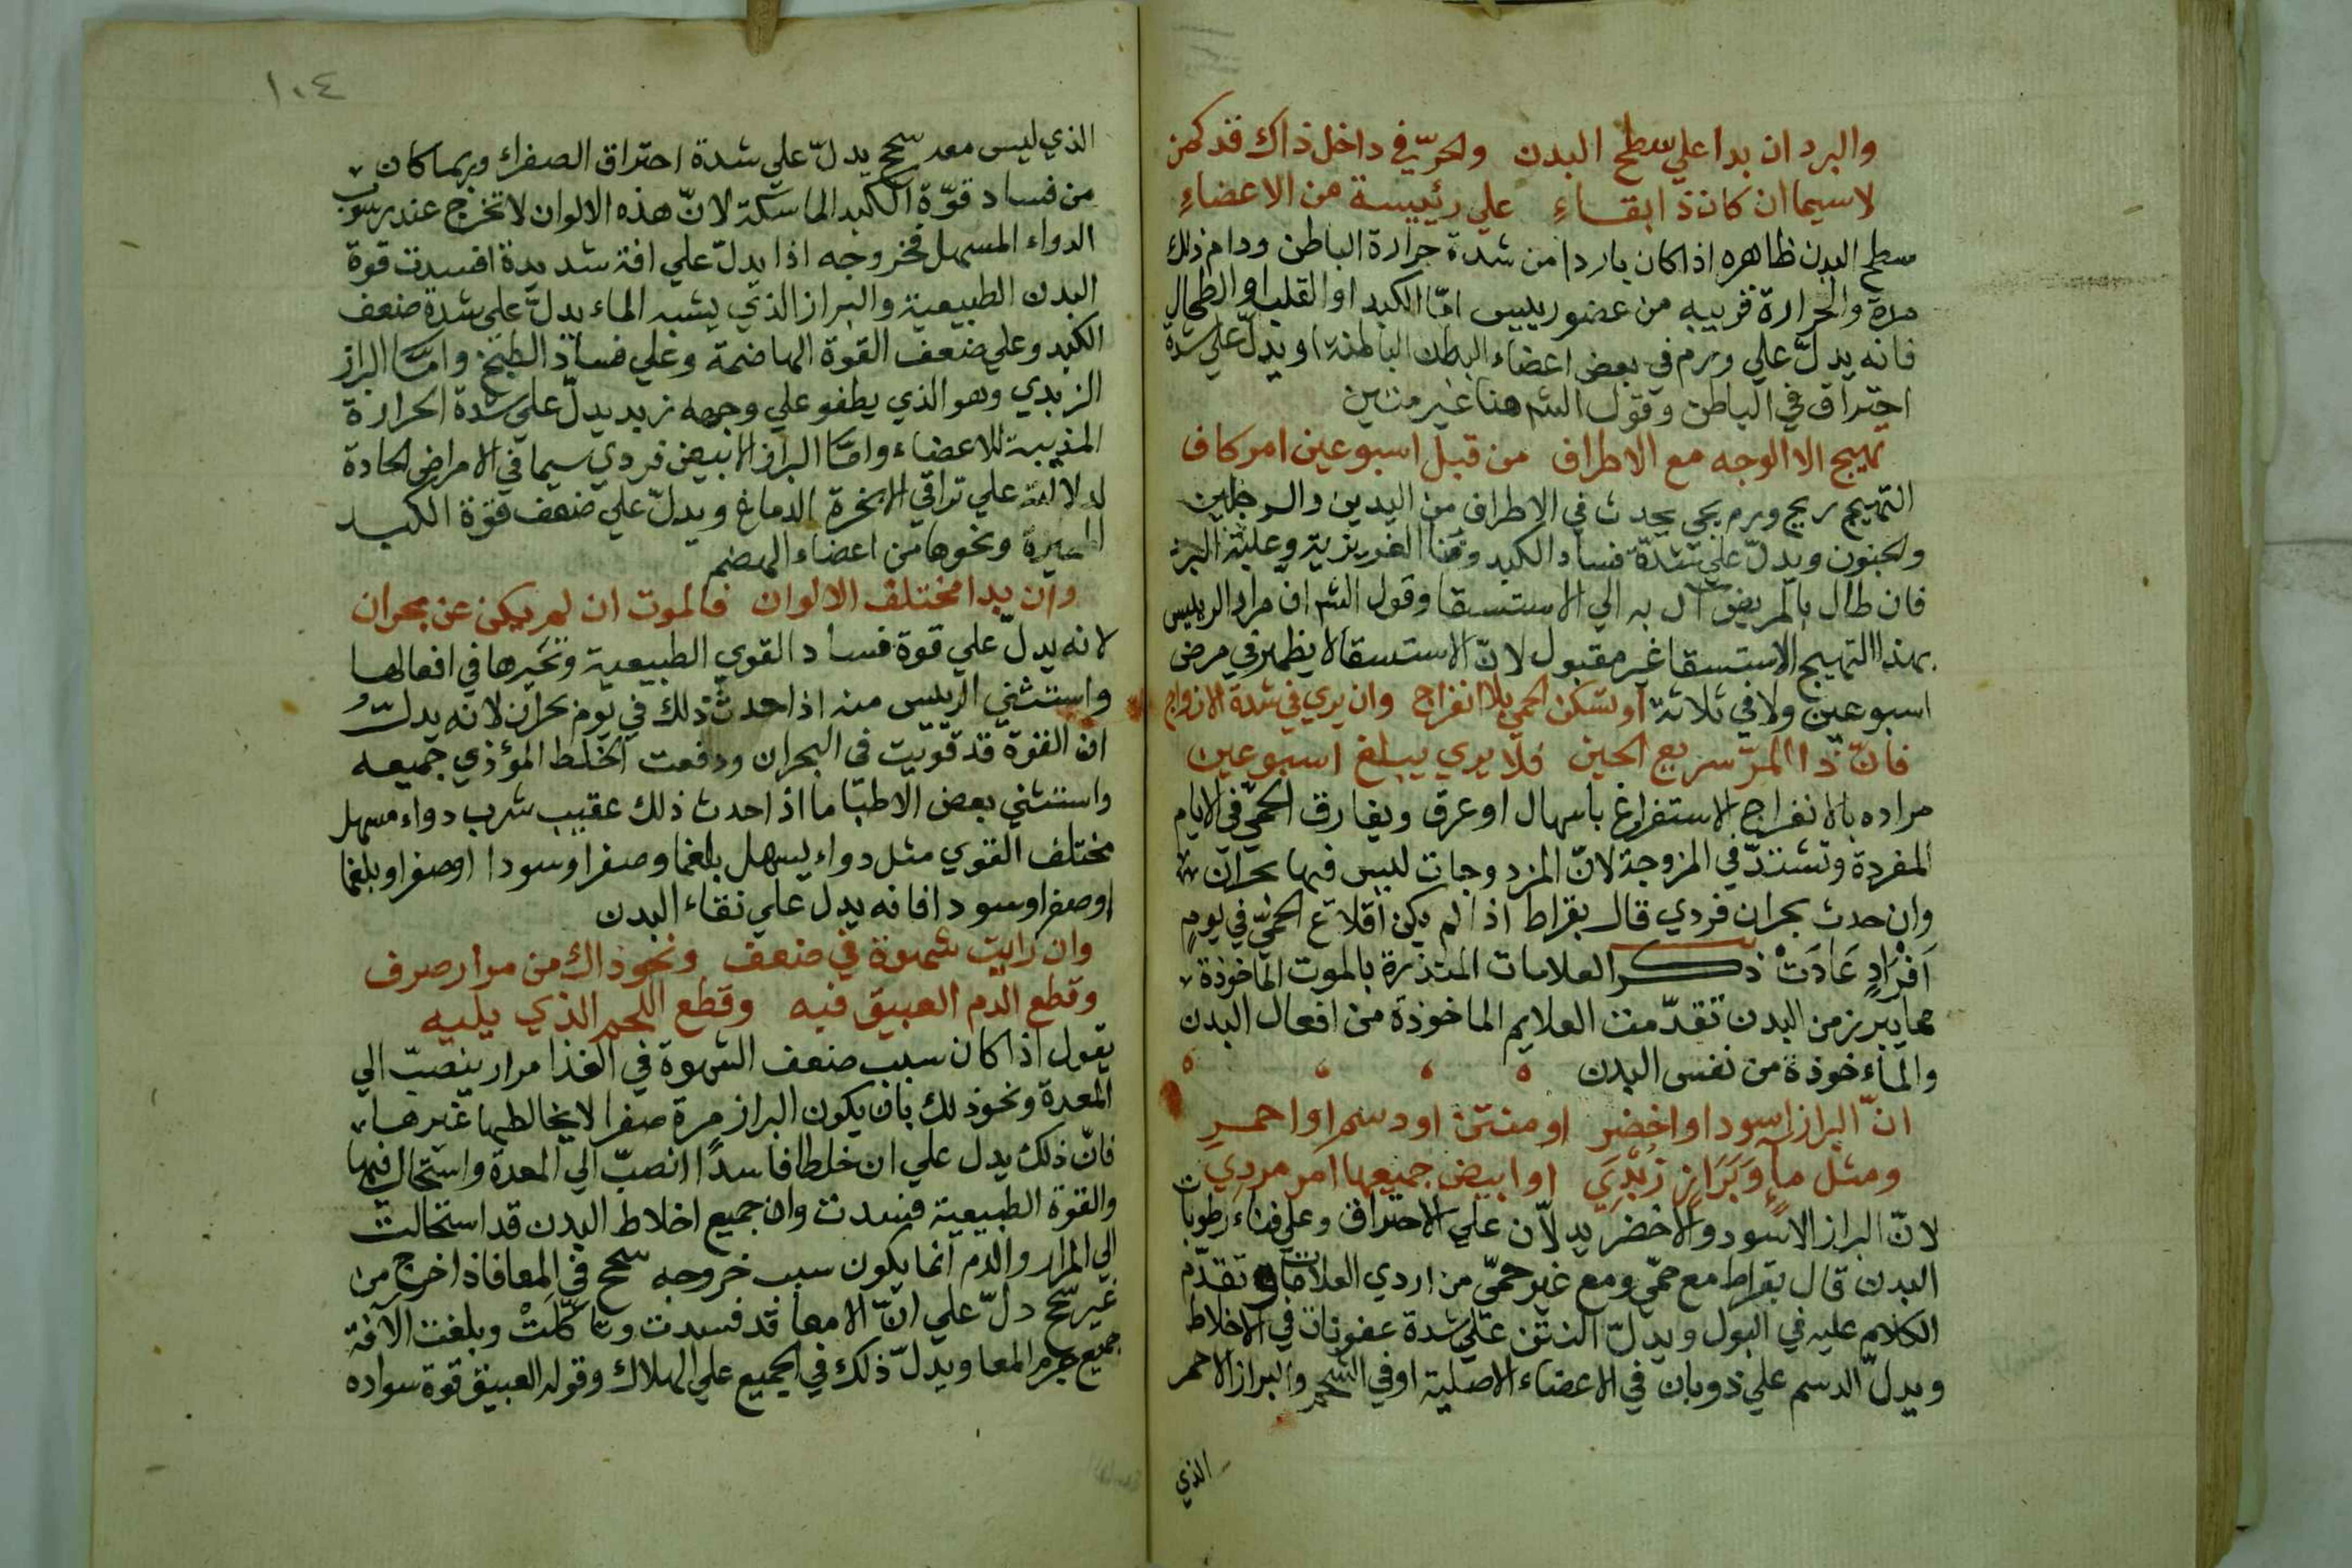 والبرد ان بدا علي سطح البدن والحرّ في داخل ذاك قد كمن
لاسيما ان كان ذا بقاءِ علي رئيسة من الاعضاءِ
سطح البدن ظاهره اذا كان باردا من شدة حرارة الباطن ودام ذلك
مدة والحرارة قريبه من عضو رييس امّا الكبد او القلب او الطحال
فانه يدلّ علي ورم في بعض اعضاء البطن الباطنة او يدلّ علي شدة
احتراق في الباطن وقول الشه هنا غير متين
تهيج الا الوجه مع الاطراف من قبل اسبوعين امر كاف
التهيج ريح وورم يحدث في الاطراف من اليدين والرجلين
والجفون ويدلّ علي شدّة فساد الكبد وفنا الغريزية وغلبة البرد
فان طال بالمريض آل به الي الاستسقا وقول الشه ان مراد الرييس
بهذا التهيج الاستسقا غير مقبول لانّ الاستسقا لا يظهر في مرض
اسبوعين ولا في ثلاثة او تسكن الحمي بلا انفراج وان يري في شدة الازواج
فانّ ذا المرّ سريع الحين فلا يري يبلغ اسبوعين
مراده بالانفراج الاستفراغ باسهال او عرق ويفارق الحمّي في الايام
المفردة وتشتدّ في المزوجة لانّ المزدوجات ليس فيها بحران
وان حدث بحران فردي قال بقراط اذا لم يكن اقلاع الحمّي في يوم
اَفْرَادٍ عَادَتْ ذكر العلامات المنذرة بالموت الماخوذة
مما يبرز من البدن تقدّمت العلايم الماخوذة من افعال البدن
والماءخوذة من نفس البدن
انّ البراز اسود او اخضر او منتن او دسم او احمر
ومثل ماءٍ وَبَرَازٍ زُبْدِي او ابيض جميعها امر مردي
لانّ البراز الاسود والاخضر يدلاّن علي الاحتراق وعلي فناء رطوبات
البدن قال بقراط مع حمّي ومع غير حمّي من اردي العلامات تقدّم
الكلام عليه في البول ويدلّ النتن علي شدة عفونات في الاخلاط
ويدلّ الدسم علي ذوبان في الاعضاء الاصلية او في الشحم والبراز الاحمر
الذي
١٠٤
الذي ليس معه سحج يدلّ علي شدة احتراق الصفراء وربما كان
من فساد قوّة الكبد الماسكة لانّ هذه الالوان لا تخرج عند شرب
الدواء المسهل فخروجه اذا يدلّ علي افة شديدة افسدت قوة
البدن الطبيعية والبراز الذي يشبه الماء يدلّ علي شدة ضعف
الكبد وعلي ضعف القوة الهاضمة وعلي فساد الطبخ وامّا البراز
الزبدي وهو الذي يطفو علي وجهه زبد يدلّ علي شدة الحرارة
المذيبة للاعضاء وامّا البراز الابيض فردي سيما في الامراض الحادة
لدلالته علي تراقي الابخرة الدماغ ويدلّ علي ضعف قوّة الكبد
المغيرة ونحوها من اعضاء الهضم
وان بدا مختلف الالوان فالموت ان لم يكن عن بحران
لانه يدلّ علي قوة فساد القوي الطبيعية وتغيرها في افعالها
واستثني الرييس منه اذا حدث ذلك في يوم بحران لانه يدلّ
ان القوة قد قويت في البحران ودفعت الخلط المؤذي جميعه
واستثني بعض الاطبّا ما اذا حدث ذلك عقيب شرب دواء مسهل
مختلف القوي مثل دواء يسهل بلغما وصفرا وسودا او صفرا وبلغما
او صفرا وسودا فانه يدل علي نقاء البدن
وان رايت شهوة في ضعف ونحو ذاك من مرار صرف
وقطع الدم العبيق فيه وقطع اللحم الذي يليه
يقول اذا كان سبب ضعف الشهوة في الغذا مرار ينصبّ الي
المعدة ونحو ذلك بان يكون البراز مرة صفرا لا يخالطها غيرها
فانّ ذلك يدل علي ان خلطا فاسدًا انصبّ الي المعدة واستحال فيها
والقوة الطبيعية فسدت وان جميع اخلاط البدن قد استحالت
الي المرار والدم انما يكون سبب خروجه سحج في المعا فاذا خرج من
غير سحج دلّ علي انّ الامعا قد فسدت وتاكّلَتْ وبلغت الآفة
جميع جرم المعا ويدلّ ذلك في الجميع علي الهلاك وقوله العبيق قوة سواده